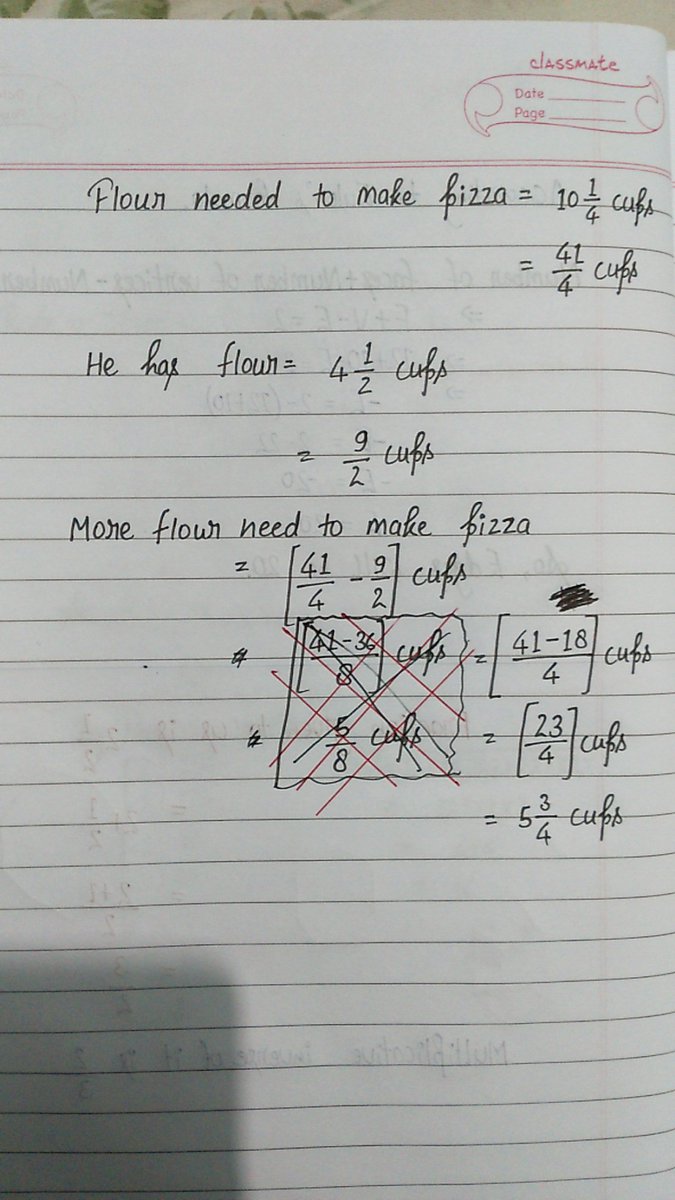 classmate
Date
Page
Flour needed to make pizza = 10 1/4 cups
= 41/4 cups
He has flour = 4 1/2 cups
= 9/2 cups
More flour need to make pizza
= [41/4 - 9/2] cups
[41-36/8] cups = [41-18/4] cups
5/8 cups = [23/4] cups
= 5 3/4 cups